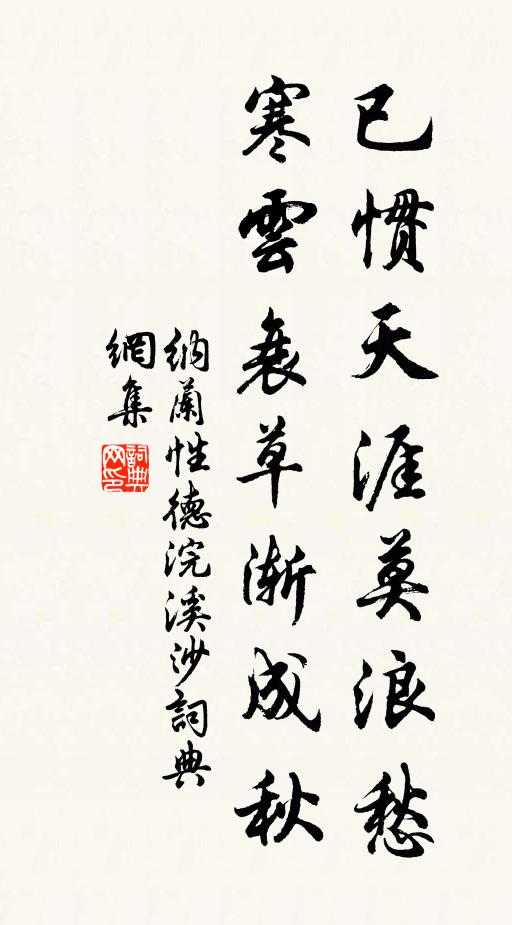 已惯天涯莫浪愁
寒雲衰草渐成秋
纳蘭性德浣溪沙詞典
網集
詞典
网印